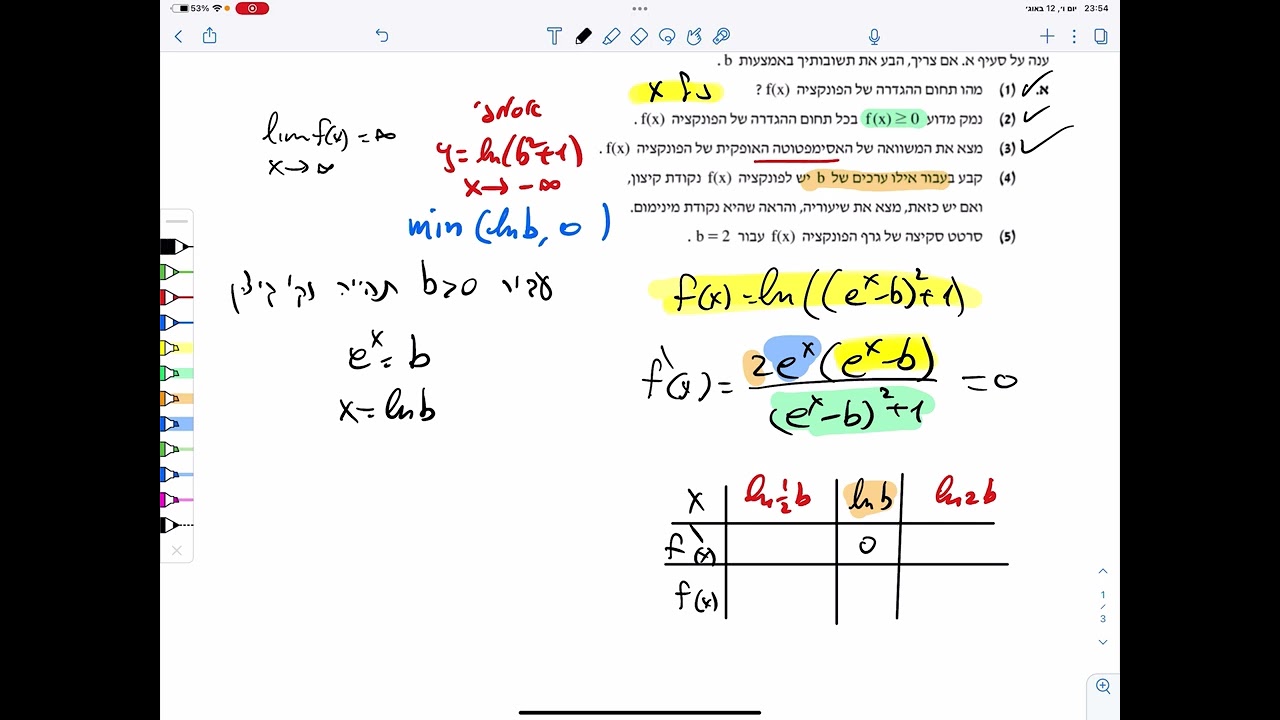 53%
23:54 יום ו׳, 12 באוג׳
ענה על סעיף א. אם צריך, הבע את תשובותיך באמצעות b .
א. (1) מהו תחום ההגדרה של הפונקציה f(x) ?
כל x
(2) נמק מדוע f(x) ≥ 0 בכל תחום ההגדרה של הפונקציה f(x) .
(3) מצא את המשוואה של האסימפטוטה האופקית של הפונקציה f(x) .
(4) קבע בעבור אילו ערכים של b יש לפונקציה f(x) נקודת קיצון,
ואם יש כזאת, מצא את שיעוריה, והראה שהיא נקודת מינימום.
(5) סרטט סקיצה של גרף הפונקציה f(x) עבור b = 2 .
lim f(x) = ∞
x → ∞
y = ln(b²+1)
x → -∞
min (lnb, 0 )
עבור b>0 תהייה נק' קיצון
eˣ = b
x = lnb
f(x) = ln((eˣ-b)²+1)
f'(x) = 2eˣ(eˣ-b) / (eˣ-b)²+1 = 0
x ln½b lnb ln2b
f'(x) 0
f(x)
1
/
3